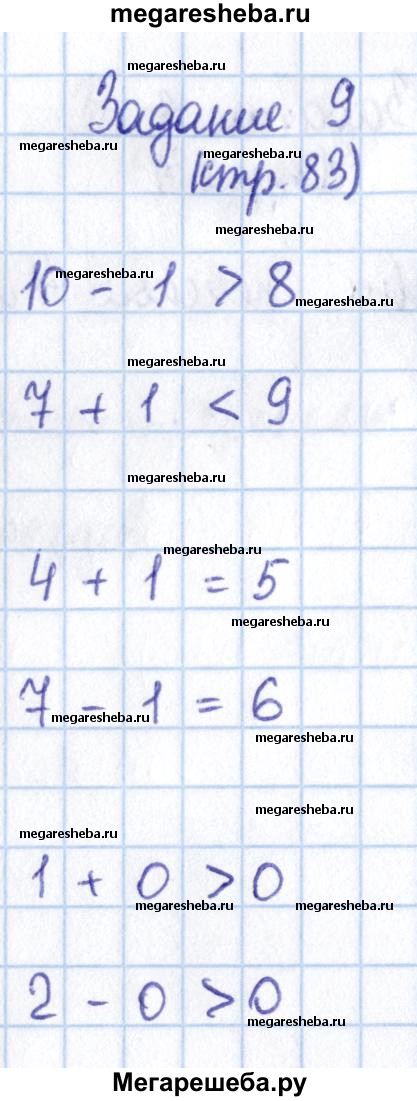 megaresheba.ru
megaresheba.ru
Задание 9
megaresheba.ru
megaresheba.ru
(стр. 83)
megaresheba.ru
10 - 1 > 8
megaresheba.ru
megaresheba.ru
megaresheba.ru
7 + 1 < 9
megaresheba.ru
megaresheba.ru
4 + 1 = 5
megaresheba.ru
7 - 1 = 6
megaresheba.ru
megaresheba.ru
megaresheba.ru
megaresheba.ru
1 + 0 > 0
megaresheba.ru
megaresheba.ru
2 - 0 > 0
megaresheba.ru
Мегарешеба.ру